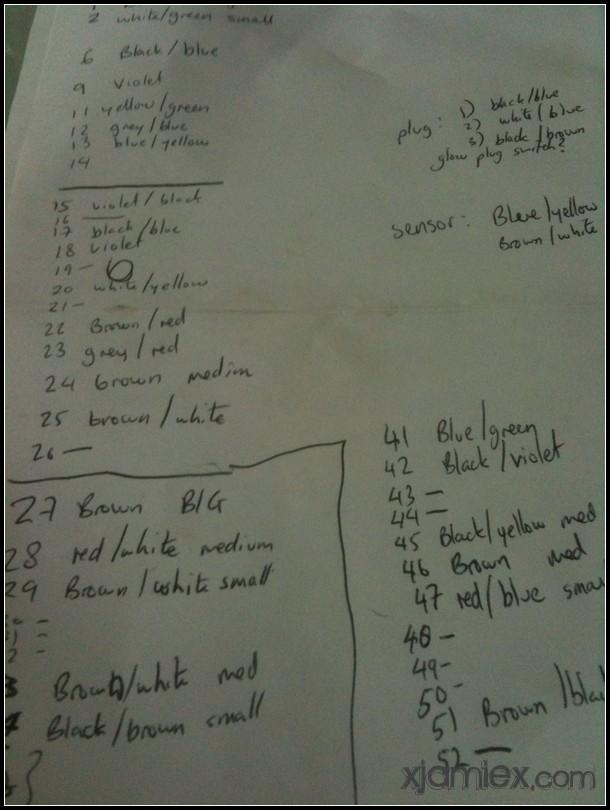 2 white/green small
6 Black/blue
9 Violet
11 yellow/green
12 grey/blue
13 blue/yellow
14
15 violet/black
16
17 black/blue
18 violet
19 -
20 white/yellow
21 -
22 Brown/red
23 grey/red
24 brown medim
25 brown/white
26 -
27 Brown BIG
28 red/white medium
29 Brown/white small
-
-
-
Brown/white med
Black/brown small
plug: 1) black/blue
2) white/blue
3) black/brown
glow plug switch?
sensor: Blue/yellow
Brown/white
41 Blue/green
42 Black/violet
43 -
44 -
45 Black/yellow med
46 Brown med
47 red/blue smal
48 -
49 -
50 -
51 Brown/blac
52 -
xjamiex.com